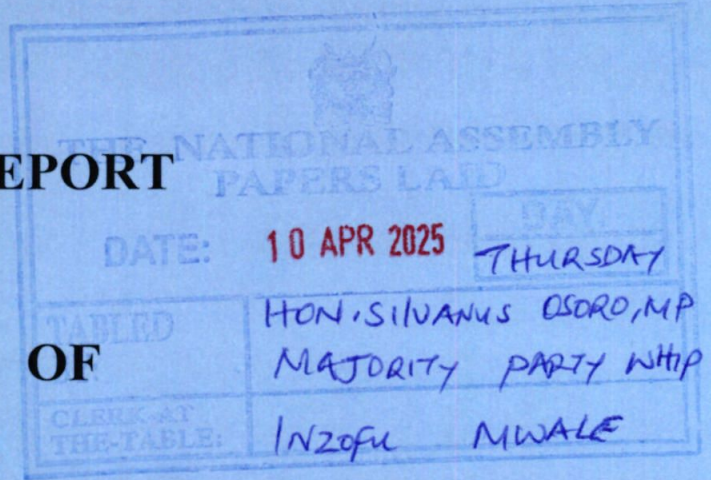 THE NATIONAL ASSEMBLY
EPORT
PAPERS LAID
DATE: 10 APR 2025
DAY
THURSDAY
TABLED
HON. SILVANUS OSORO, MP
OF
MAJORITY PARTY WHIP
CLERK AT
THE-TABLE:
INZOFU MWALE